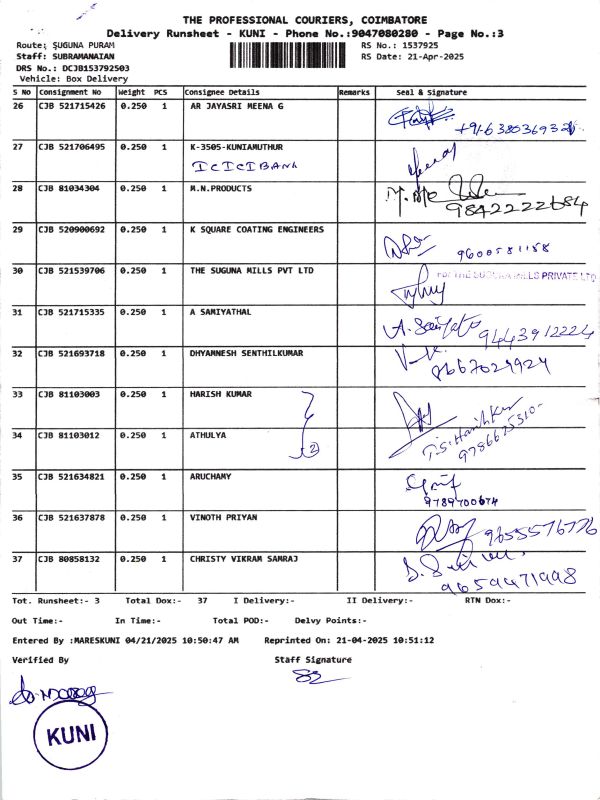 THE PROFESSIONAL COURIERS, COIMBATORE
Delivery Runsheet - KUNI - Phone No.:9047080280 - Page No.:3
Route: SUGUNA PURAM RS No.: 1537925
Staff: SUBRAMANAIAN RS Date: 21-Apr-2025
DRS No.: DCJB153792503
Vehicle: Box Delivery
S No Consignment No Weight PCS Consignee Details Remarks Seal & Signature
26 CJB 521715426 0.250 1 AR JAYASRI MEENA G
27 CJB 521706495 0.250 1 K-3505-KUNIAMUTHUR
ICICIBANK
28 CJB 81034304 0.250 1 M.N.PRODUCTS
9842222684
29 CJB 520900692 0.250 1 K SQUARE COATING ENGINEERS
9600581158
30 CJB 521539706 0.250 1 THE SUGUNA MILLS PVT LTD For THE SUGUNA MILLS PRIVATE LTD
31 CJB 521715335 0.250 1 A SAMIYATHAL
9443912224
32 CJB 521693718 0.250 1 DHYANNESH SENTHILKUMAR
8667029924
33 CJB 81103003 0.250 1 HARISH KUMAR
34 CJB 81103012 0.250 1 ATHULYA 2
35 CJB 521634821 0.250 1 ARUCHAMY
9789700674
36 CJB 521637878 0.250 1 VINOTH PRIYAN
9655576776
37 CJB 80858132 0.250 1 CHRISTY VIKRAM SAMRAJ
9659471998
Tot. Runsheet:- 3 Total Dox:- 37 I Delivery:- II Delivery:- RTN Dox:-
Out Time:- In Time:- Total POD:- Delvy Points:-
Entered By :MARESKUNI 04/21/2025 10:50:47 AM Reprinted On: 21-04-2025 10:51:12
Verified By Staff Signature
KUNI